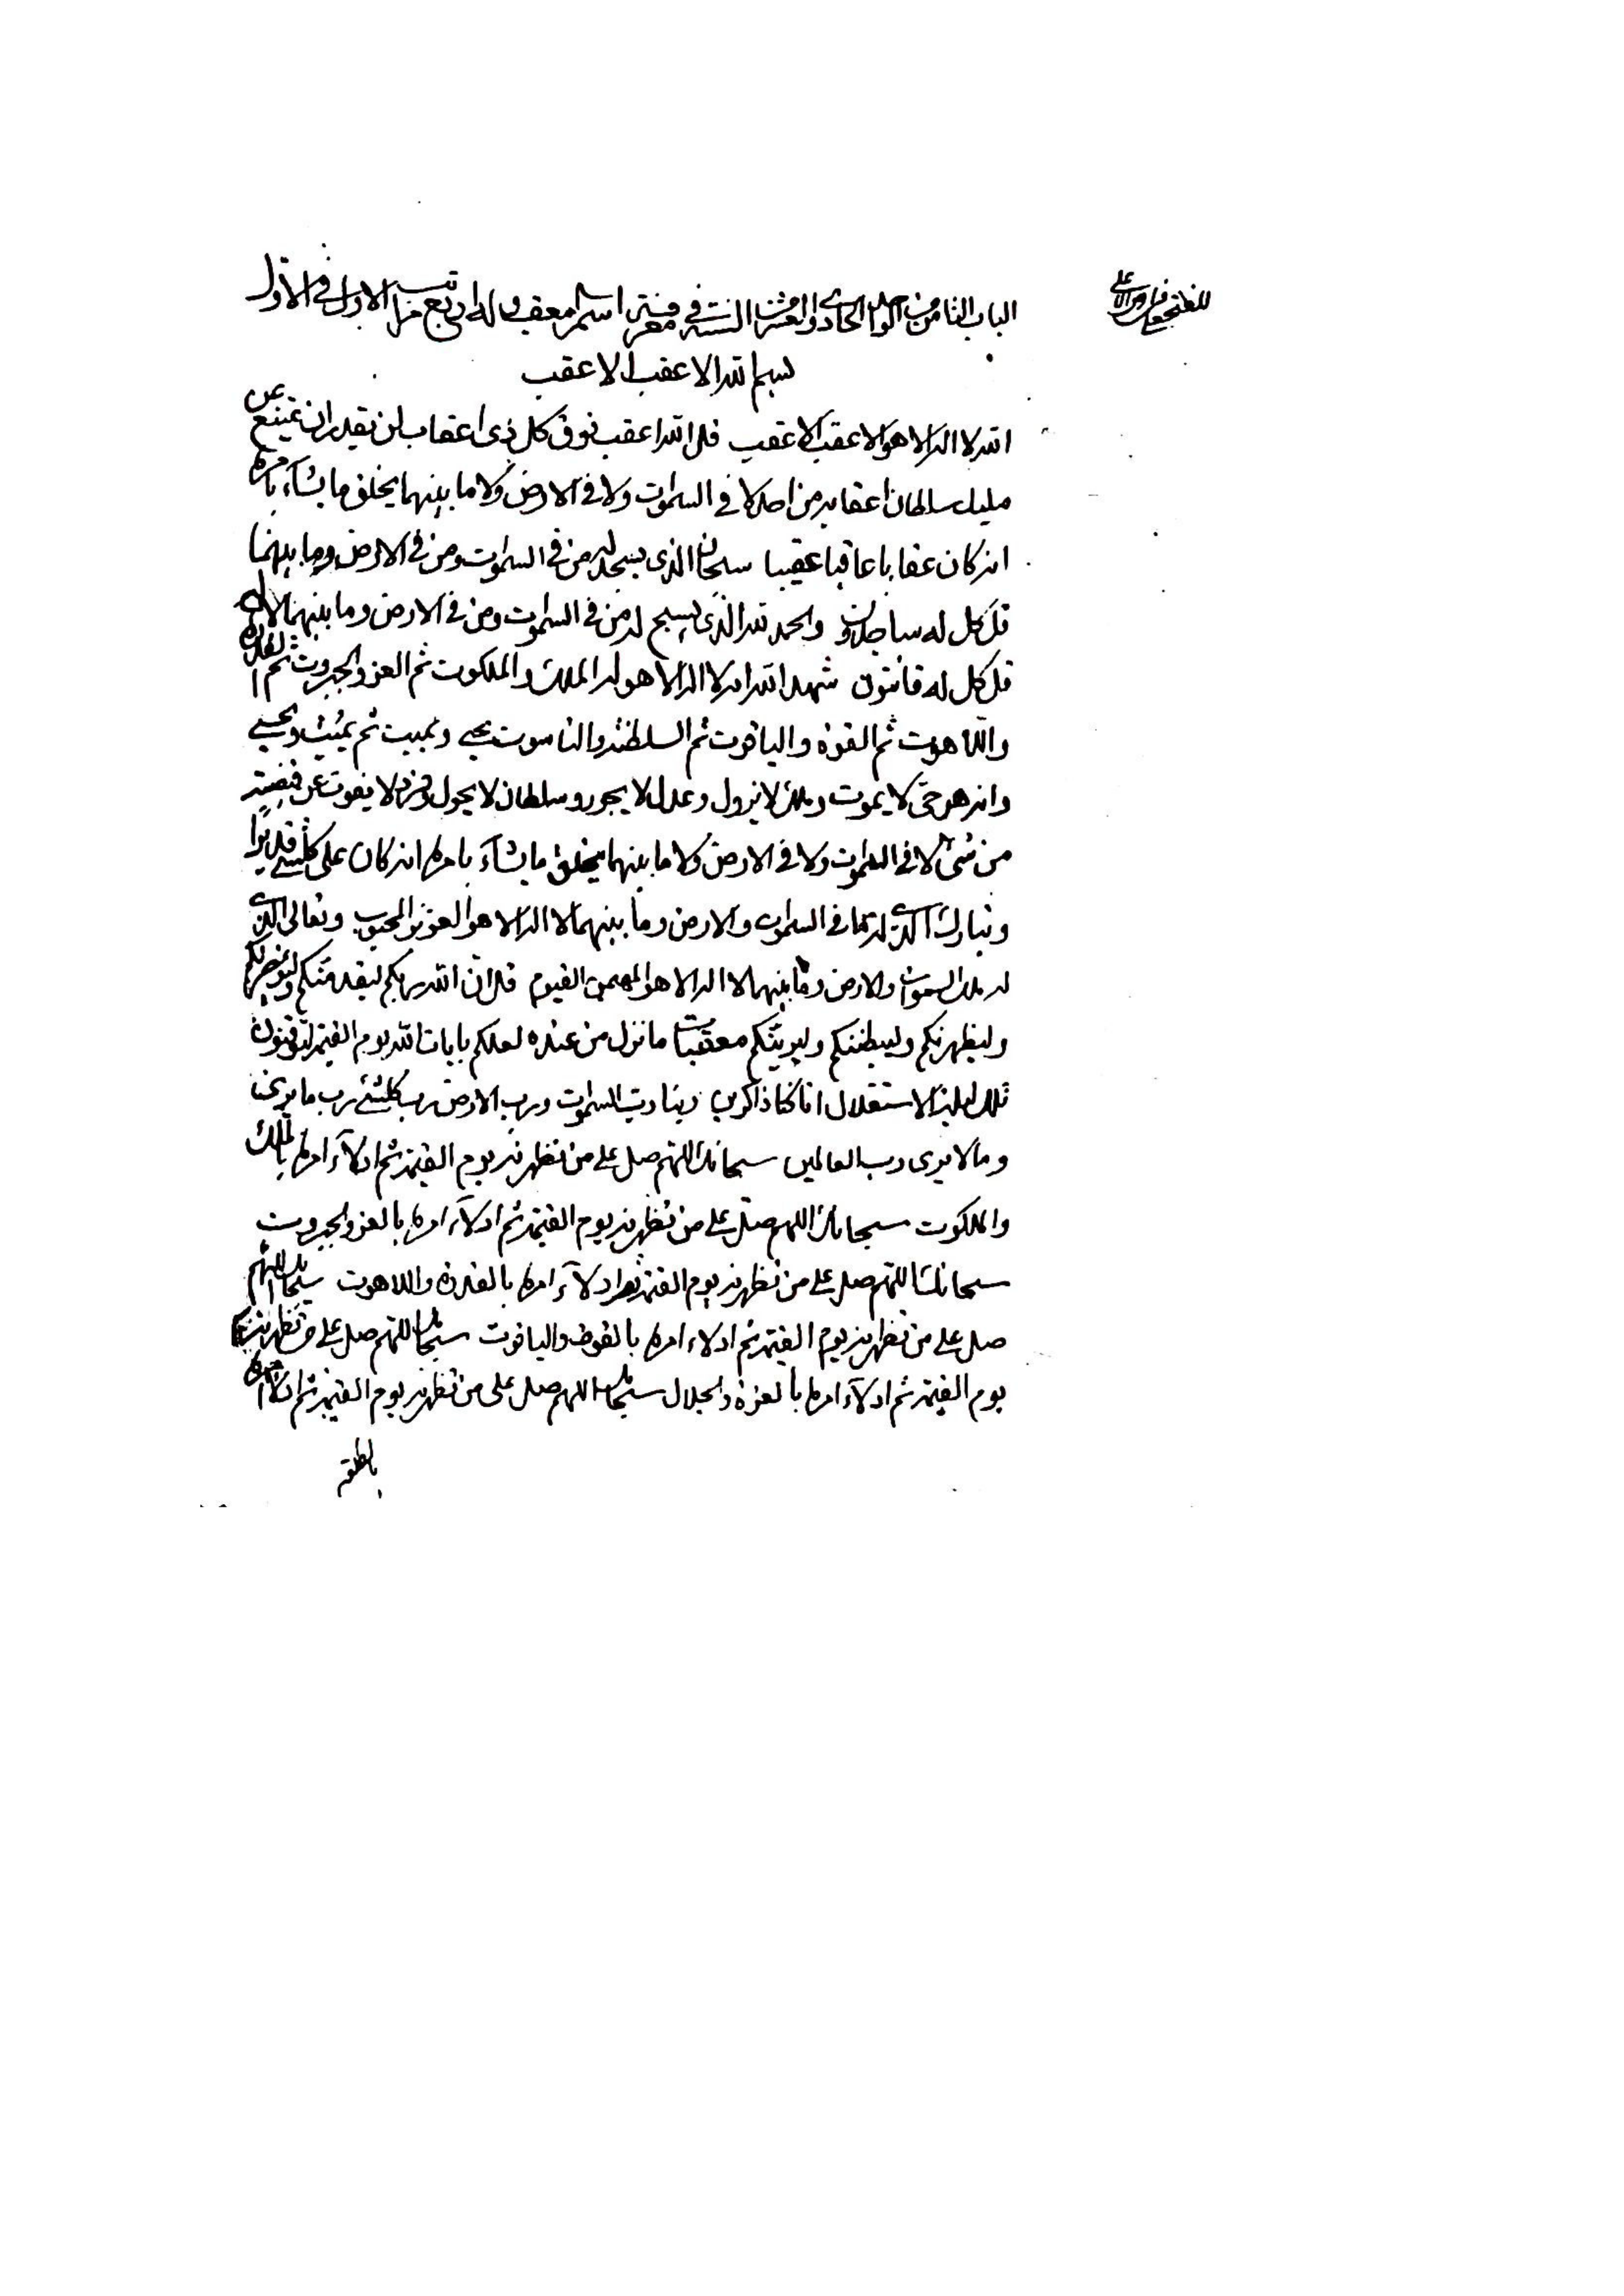 الباب الثامن من الواحد الحادی و العشر من السنة فی معرفة اسم المعقب و له اربع مراتب الاول فی الاول
بسم الله الاعقب الاعقب
الله لا اله الا هو الاعقب الاعقب قل الله اعقب فوق کل ذی اعقاب لن یقدر ان یمتنع عن
ملیک سلطان اعقابه من احد لا فی السموات ولا فی الارض ولا ما بینهما یخلق ما یشآء بامره
انه کان عقابا عاقبا عقیبا سبحان الذی یسجد له من فی السموات ومن فی الارض وما بینهما
قل کل له ساجدون والحمد لله الذی یسبح له من فی السموات ومن فی الارض وما بینهما
قل کل له قانتون شهد الله انه لا اله الا هو له الملک والملکوت ثم العز والجبروت ثم القدرة
واللاهوت ثم القوة والیاقوت ثم السلطنة والناسوت یحیی ویمیت ثم یمیت ویحیی
وانه هو حی لا یموت وملک لا یزول وعدل لا یجور وسلطان لا یحول وفرد لا یفوت عن قبضته
من شیء لا فی السموات ولا فی الارض ولا ما بینهما یخلق ما یشآء بامره انه کان علی کلشیء قدیرا
وتبارک الذی له ما فی السموات والارض وما بینهما لا اله الا هو العزیز المحبوب وتعالی الذی
له ملک السموات والارض وما بینهما لا اله الا هو المهیمن القیوم قل ان الله ربکم لیقدمنکم ولیؤخرنکم
ولیظهرنکم ولیبطننکم ولیرینکم معقبات ما نزل من عنده لعلکم بایات الله یوم القیمة لتوقنون
تلک لیلة الاستقلال انا کنا ذاکرین ربنا رب السموات ورب الارض رب کلشیء رب ما یری
وما لا یری رب العالمین سبحانک اللهم صل علی من تظهرنه یوم القیمة ثم ادلآء امره بالملک
والملکوت سبحانک اللهم صل علی من تظهرنه یوم القیمة ثم ادلآء امره بالعز والجبروت
سبحانک اللهم صل علی من تظهرنه یوم القیمة ثم ادلآء امره بالقدرة واللاهوت سبحانک اللهم
صل علی من تظهرنه یوم القیمة ثم ادلاء امره بالقوة والیاقوت سبحانک اللهم صل علی من تظهرنه
یوم القیمة ثم ادلآء امره بالعزة والجلال سبحانک اللهم صل علی من تظهرنه یوم القیمة ثم ادلآء امره
بالطلعة